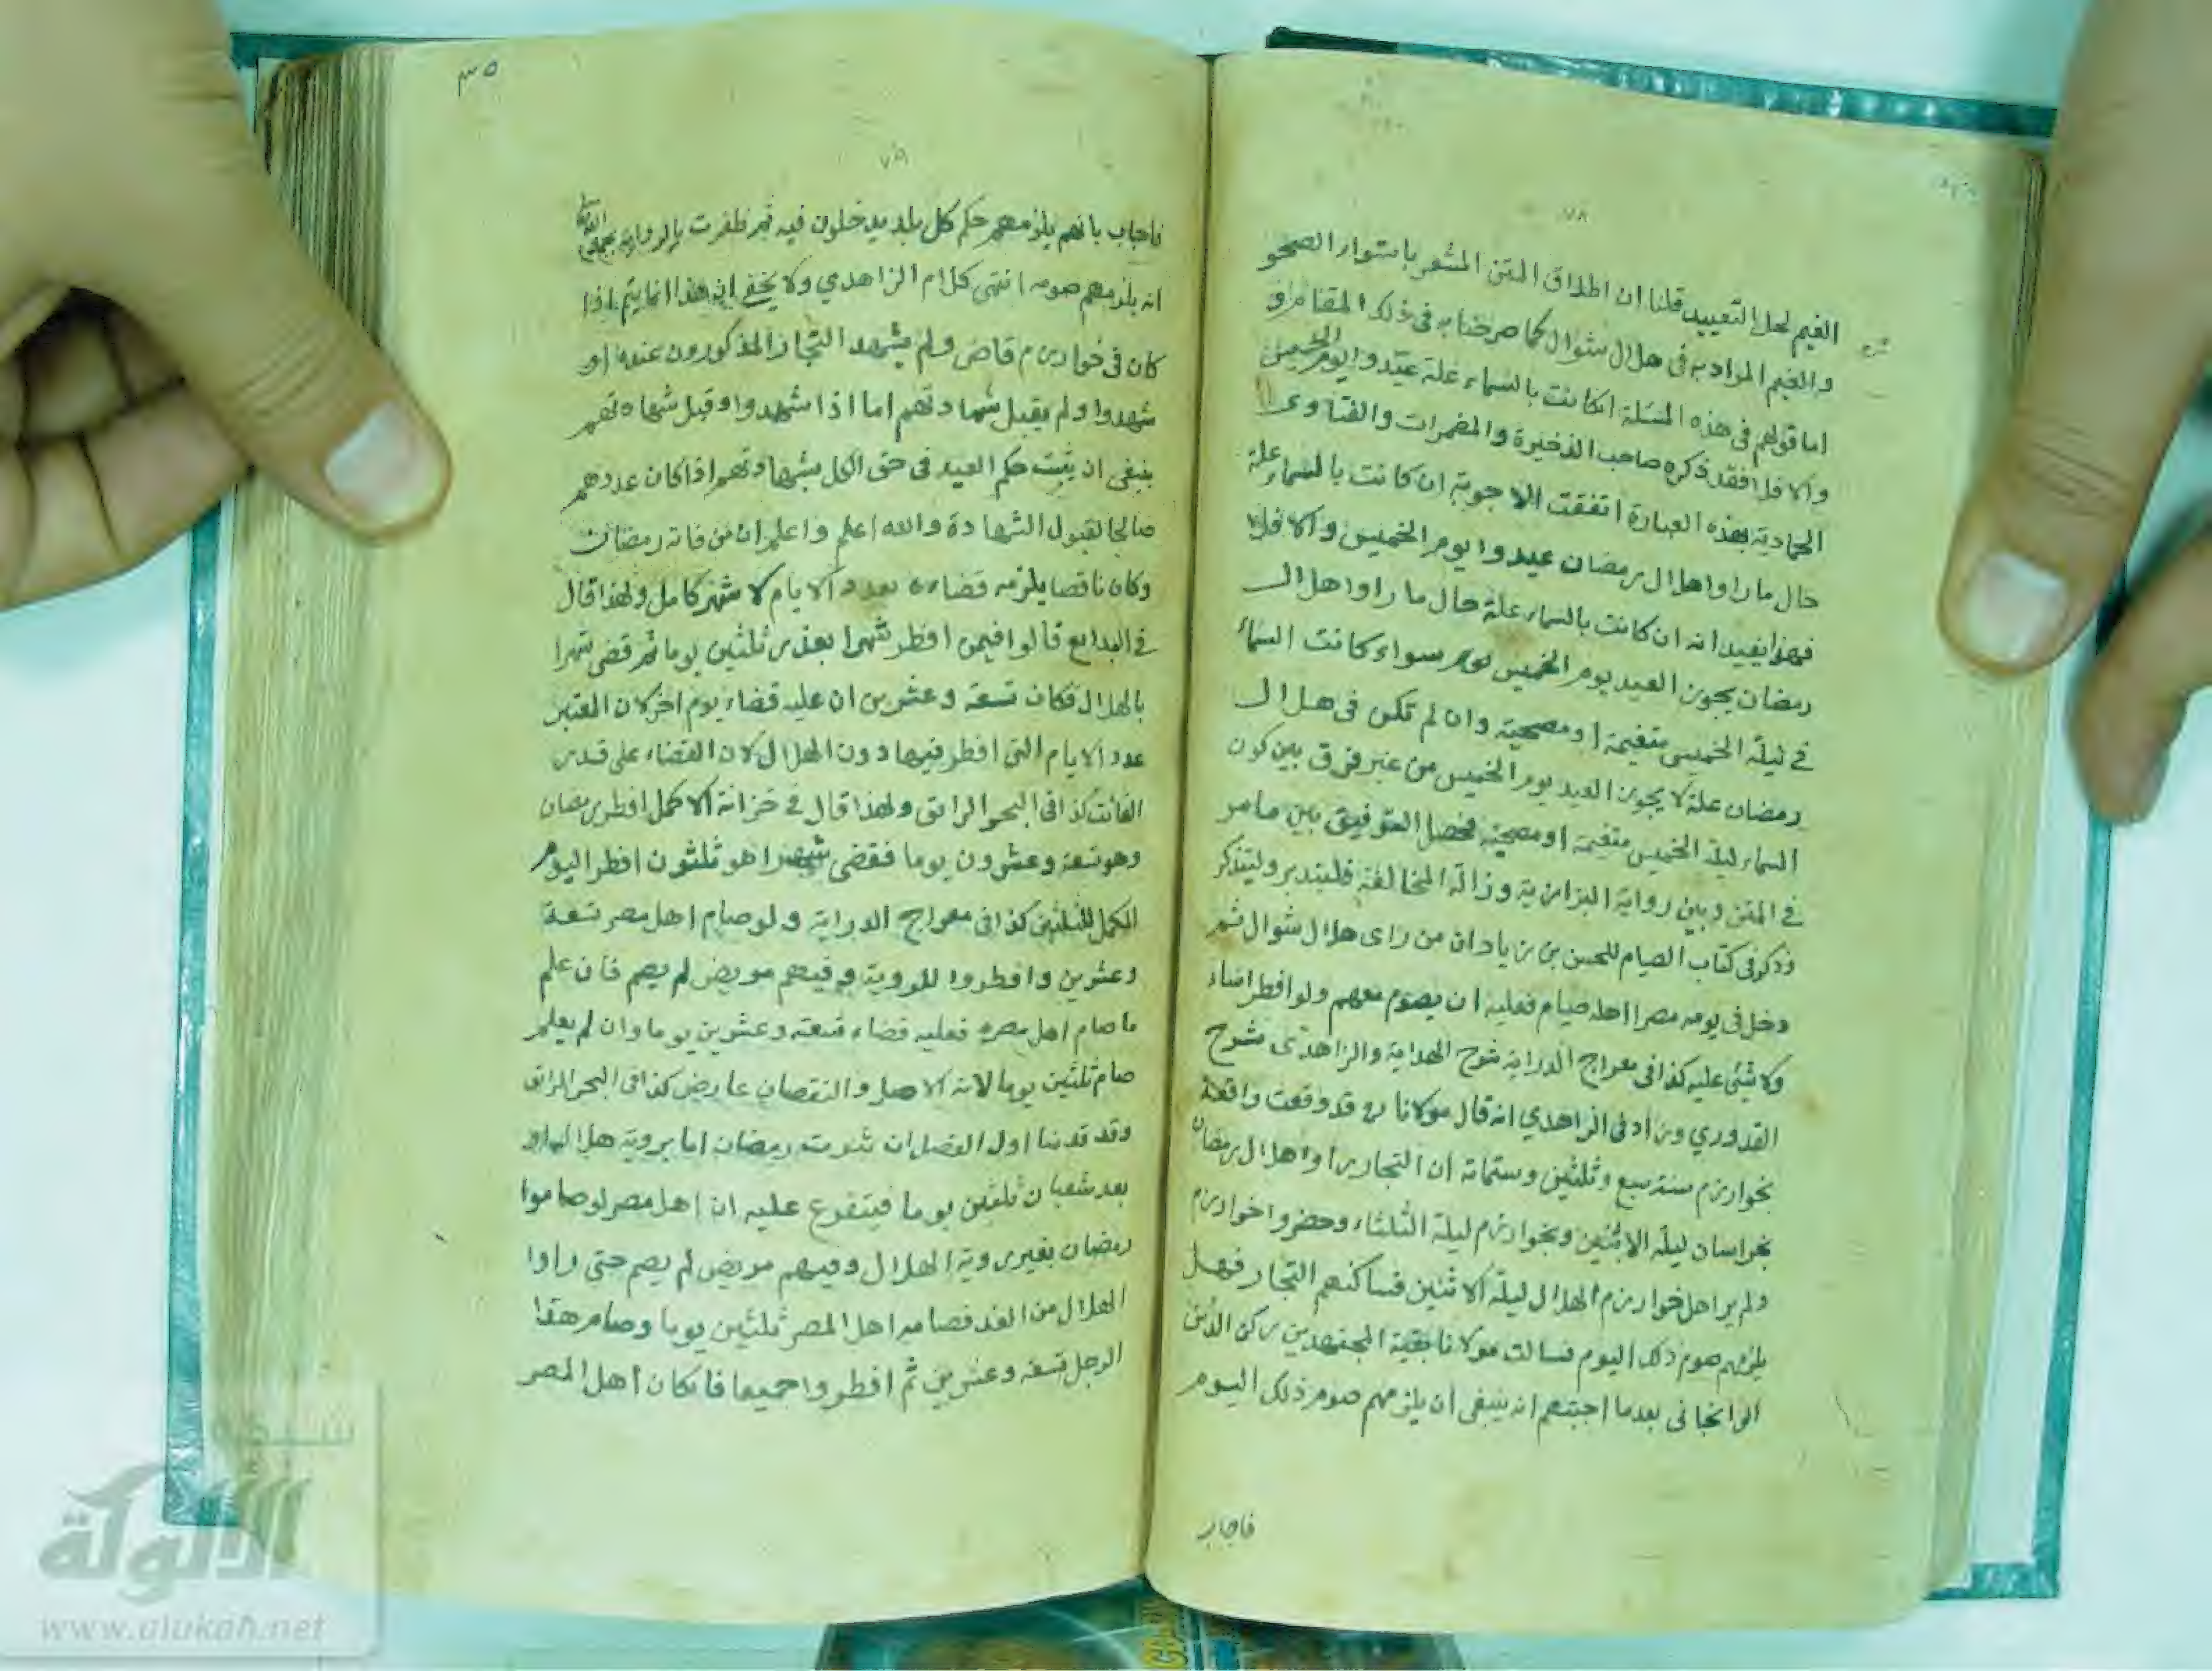 ٧٨
الغيم لعل التقييد قلنا ان اطلاق المتن المشعر باستواء الصحو
والغيم المراد به في هلال شوال كما صرحنا به في ذلك المقام و
اما قولهم في هذه المسئلة ان كانت بالسماء علة عيدوا يوم الخميس
والا فلا فقد ذكره صاحب الذخيرة والمضمرات والفتاوى
الحمادية بهذه العبارة اتفقت الاجوبة ان كانت بالسماء علة
حال ما راوا هلال رمضان عيدوا يوم الخميس والا فلا
فهذا يفيد انه ان كانت بالسماء علة حال ما راوا هلال
رمضان يجوز العيد يوم الخميس سواء كانت السماء
في ليلة الخميس متغيمة او مصحية وان لم تكن في هلال
رمضان علة لا يجوز العيد يوم الخميس من غير فرق بين كون
السماء ليلة الخميس متغيمة او مصحية فحصل التوفيق بين ما مر
في المتن وبين رواية البزازية وزالة المخالفة فليتدبر وليتذكر
وذكر في كتاب الصيام للحسن بن زياد ان من راى هلال شوال ثم
دخل في يومه مصرا اهله صيام فعليه ان يصوم معهم ولو افطر اساء
ولا شئ عليه كذا في معراج الدراية شرح الهداية والزاهدى شرح
القدوري وزاد في الزاهدي انه قال مولانا رح قد وقعت واقعة
بخوارزم سنة سبع وثلثين وستمائة ان التجار راوا هلال رمضان
بخراسان ليلة الاثنين وبخوارزم ليلة الثلثاء وحضروا خوارزم
ولم ير اهل خوارزم الهلال ليلة الاثنين فساكنهم التجار فهل
يلزمهم صوم ذلك اليوم فسالت مولانا بقية المجتهدين ركن الدين
الوانجانى بعدما اجبتهم انه ينبغى ان يلزمهم صوم ذلك اليوم
فاجاب
٣٥
٧٩
فاجاب بانهم يلزمهم حكم كل بلد يدخلون فيه ثم ظفرت بالرواية بحمد الله
انه يلزمهم صومه انتهى كلام الزاهدي ولا يخفى ان هذا انما يتم اذا
كان في خوارزم قاض ولم يشهد التجار المذكورون عنده او
شهدوا ولم يقبل شهادتهم اما اذا شهدوا وقبل شهادتهم
ينبغى ان يثبت حكم العيد فى حق الكل بشهادتهم اذا كان عددهم
صالحا لقبول الشهادة والله اعلم واعلم ان من فاته رمضان
وكان ناقصا يلزمه قضاءه بعدد الايام لا شهر كامل ولهذا قال
في البدايع قالوا فيمن افطر شهرا بعذر ثلثين يوما ثم قضى شهرا
بالهلال فكان تسعة وعشرين ان عليه قضاء يوم اخر لان المعتبر
عدد الايام التى افطر فيها دون الهلال لان القضاء على قدر
الفائت كذا فى البحر الرائق ولهذا قال في خزانة الاكمل افطر رمضان
وهو تسعة وعشرون يوما فقضى شهرا هو ثلثون افطر اليوم
المكمل للثلثين كذا فى معراج الدراية ولو صام اهل مصر تسعة
وعشرين وافطروا للروية وفيهم مريض لم يصم فان علم
ما صام اهل مصره فعليه قضاء تسعة وعشرين يوما وان لم يعلم
صام ثلثين يوما لانه الاصل والنقصان عارض كذا فى البحر الرائق
وقد قدمنا اول الفصل ان ثبوت رمضان اما بروية هلاله او
بعد شعبان ثلثين يوما فيتفرع عليه ان اهل مصر لو صاموا
رمضان بغير روية الهلال وفيهم مريض لم يصم حتى راوا
الهلال من الغد فصام اهل المصر ثلثين يوما وصام هذا
الرجل تسعة وعشرين ثم افطروا جميعا فان كان اهل المصر
شبكة
الألوكة
www.alukah.net